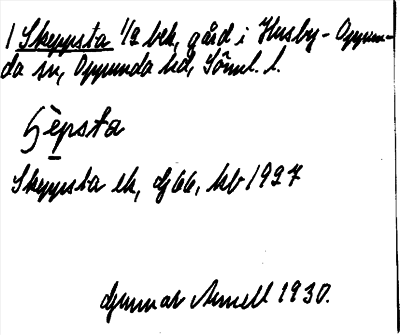 1 Skeppsta 1/2 bek, gård i Husby-Oppun-
da sn, Oppunda hd, Söml. l.
ʃèpsta
Skeppsta ek, dj 66, kb 1927
Gunnar Arnell 1930.